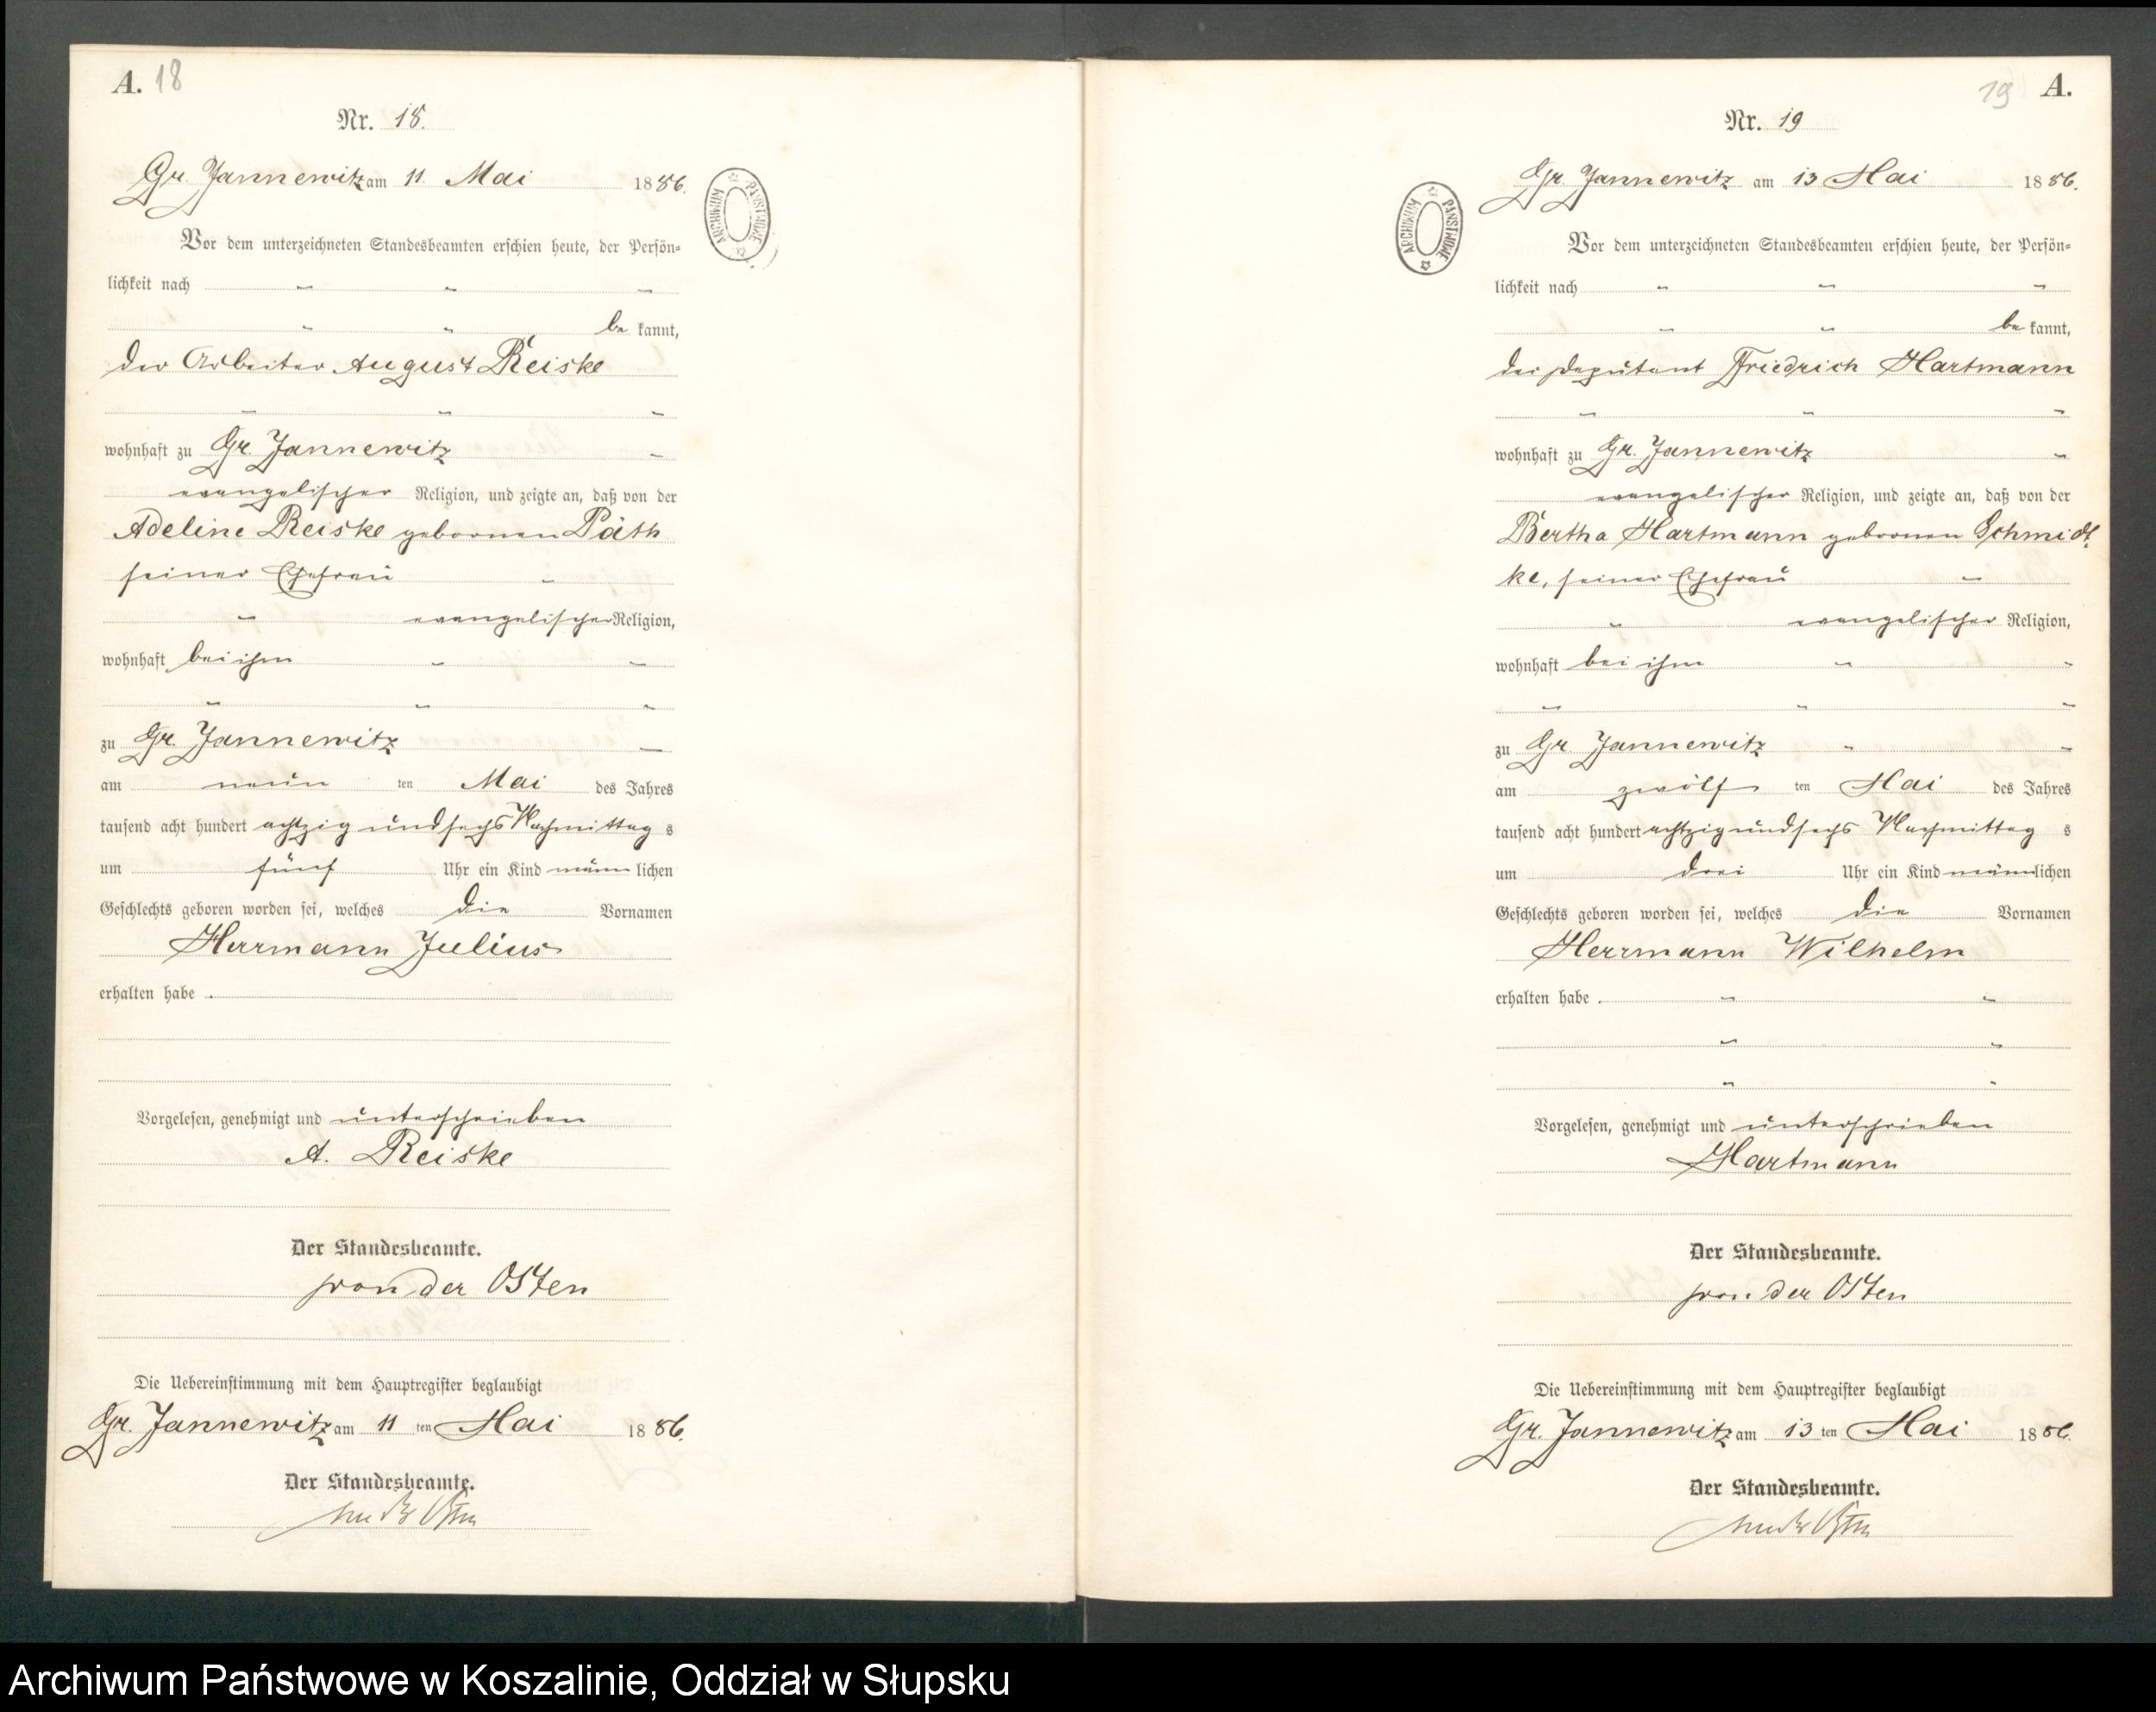 A. 18
Nr. 18.
Gr. Jannewitz am 11. Mai 1886.
Vor dem unterzeichneten Standesbeamten erschien heute, der Persön-
lichkeit nach
be kannt,
der Arbeiter August Reiske
wohnhaft zu Gr. Jannewitz
evangelischer Religion, und zeigte an, daß von der
Adeline Reiske gebornen Päth
seiner Ehefrau
evangelischer Religion,
wohnhaft bei ihm
zu Gr. Jannewitz
am neun ten Mai des Jahres
tausend acht hundert achtzig und sechs Nachmittag s
um fünf Uhr ein Kind männ lichen
Geschlechts geboren worden sei, welches die Vornamen
Herrmann Julius
erhalten habe.
Vorgelesen, genehmigt und unterschrieben
A. Reiske
Der Standesbeamte.
von der Osten
Die Uebereinstimmung mit dem Hauptregister beglaubigt
Gr. Jannewitz am 11 ten Mai 1886.
Der Standesbeamte.
von der Osten
ARCHIWUM PAŃSTWOWE
19 A.
Nr. 19
Gr. Jannewitz am 13 Mai 1886.
Vor dem unterzeichneten Standesbeamten erschien heute, der Persön-
lichkeit nach
be kannt,
der Deputant Friedrich Hartmann
wohnhaft zu Gr. Jannewitz
evangelischer Religion, und zeigte an, daß von der
Bertha Hartmann gebornen Schmidt-
ke, seiner Ehefrau
evangelischer Religion,
wohnhaft bei ihm
zu Gr. Jannewitz
am zwölf ten Mai des Jahres
tausend acht hundert achtzig und sechs Nachmittag s
um drei Uhr ein Kind männ lichen
Geschlechts geboren worden sei, welches die Vornamen
Herrmann Wilhelm
erhalten habe.
Vorgelesen, genehmigt und unterschrieben
Hartmann
Der Standesbeamte.
von der Osten
Die Uebereinstimmung mit dem Hauptregister beglaubigt
Gr. Jannewitz am 13 ten Mai 1886.
Der Standesbeamte.
von der Osten
ARCHIWUM PAŃSTWOWE
Archiwum Państwowe w Koszalinie, Oddział w Słupsku